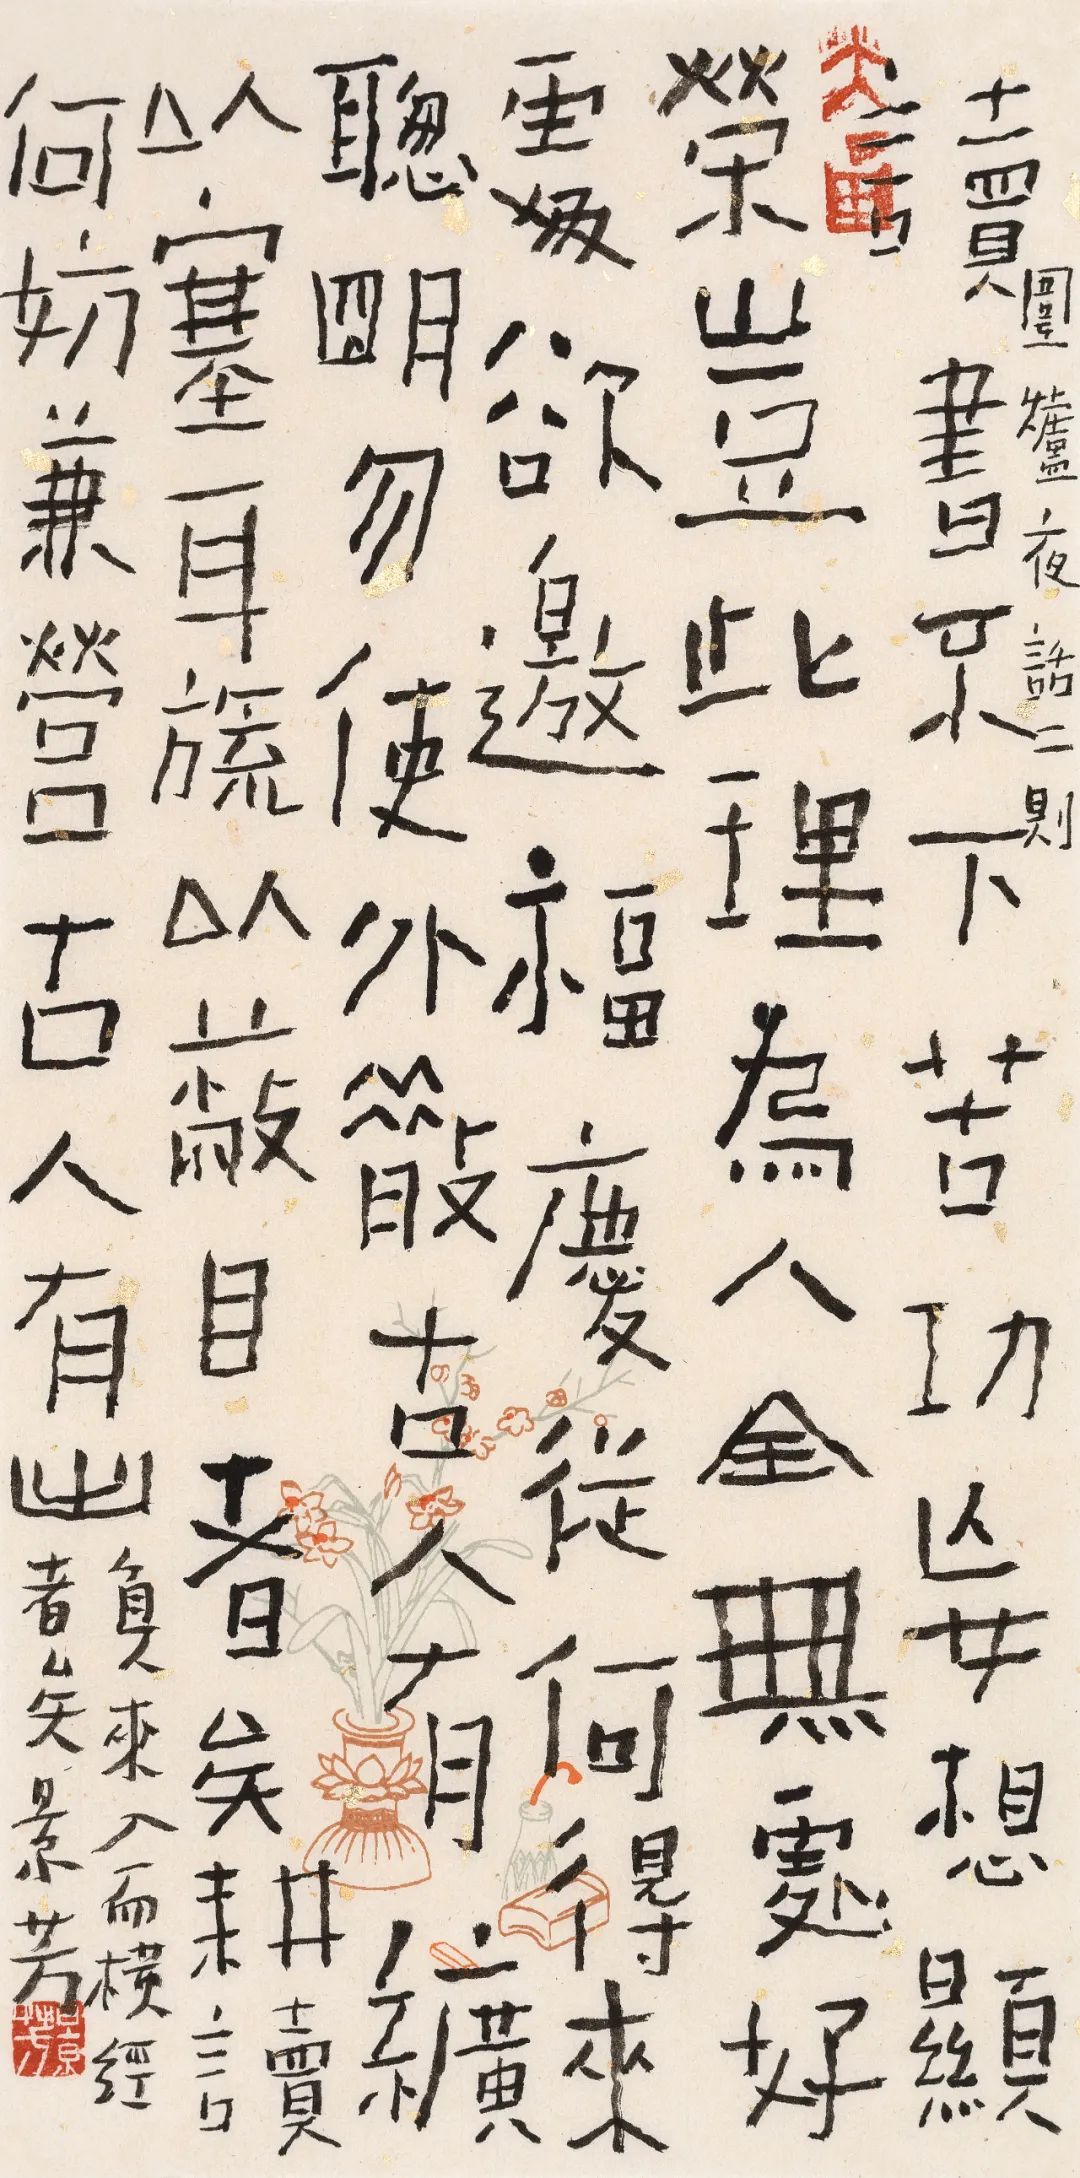 圍爐夜話二則
讀書不下苦功妄想顯
榮豈此理為人全無處好
欲邀福慶從何得來
聰明勿使外散古人有纊
以塞耳旒以蔽目者矣耕讀
何妨兼營古人有出
負來入而橫經
者矣景芳
景芳